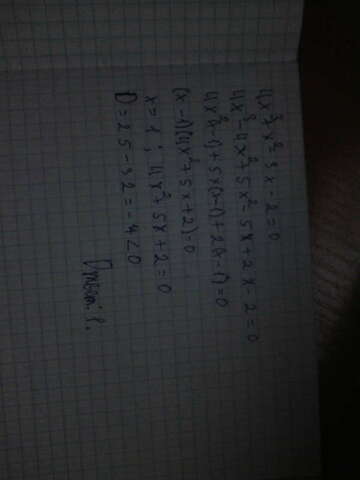 4x³+x²-3x-2=0
4x³-4x²+5x²-5x+2x-2=0
4x²(x-1)+5x(x-1)+2(x-1)=0
(x-1)(4x²+5x+2)=0
x=1; 4x²+5x+2=0
D=25-32=-7<0
Ответ: 1.